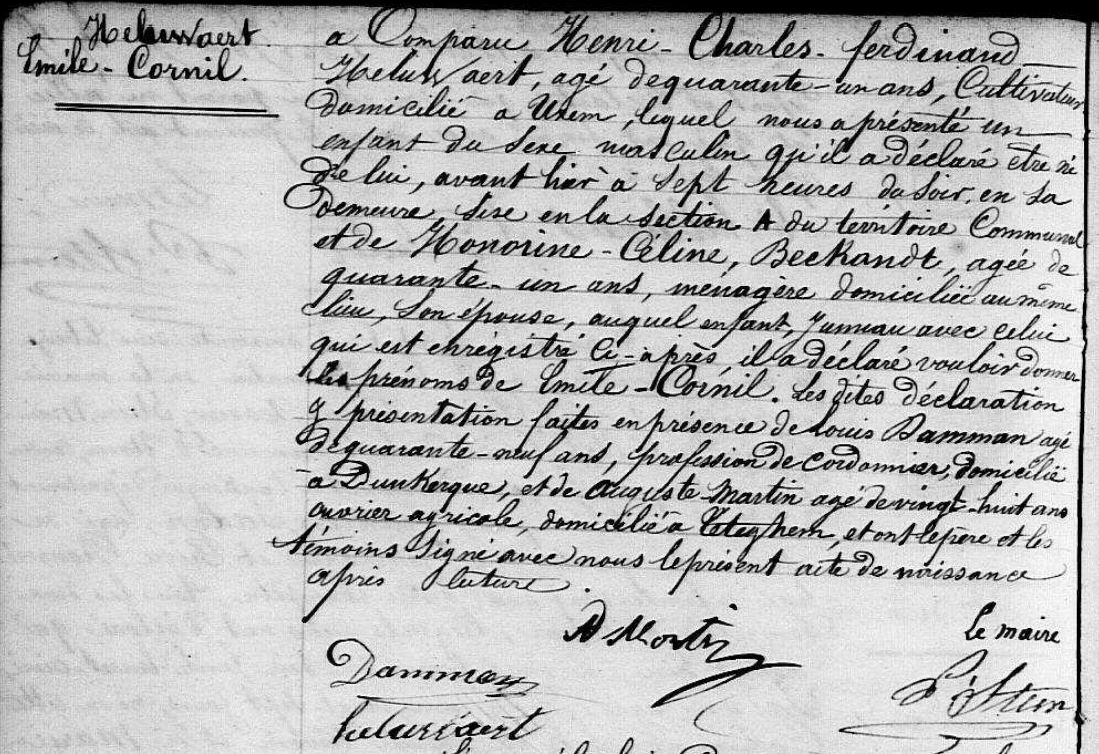 Heluwaert
Emile - Cornil.
a Comparu Henri - Charles - ferdinand
Heluwaert, agé de quarante - un ans, Cultivateur
domicilié a Uxem, lequel nous a présenté un
enfant du sexe masculin qu'il a déclaré être né
de lui, avant hier à sept heures du soir, en sa
demeure, sise en la section A du territoire Communal
et de Honorine - Céline, Beckandt, agée de
quarante - un ans, ménagère domiciliée au même
lieu, son épouse, auquel enfant, Jumeau avec celui
qui est enrégistré Ci - après il a déclaré vouloir donner
les prénoms de Emile - Cornil. Les dites déclaration
& présentation faites en présence de Louis Damman agé
de quarante - neuf ans, profession de Cordonnier, domicilié
à Dunkerque, et de Auguste Martin agé de vingt - huit ans
ouvrier agricole, domicilié à Téteghem, et ont le père et les
témoins signé avec nous le présent acte de naissance
après lecture.
A Martin
Le maire
Damman
Heluwaert